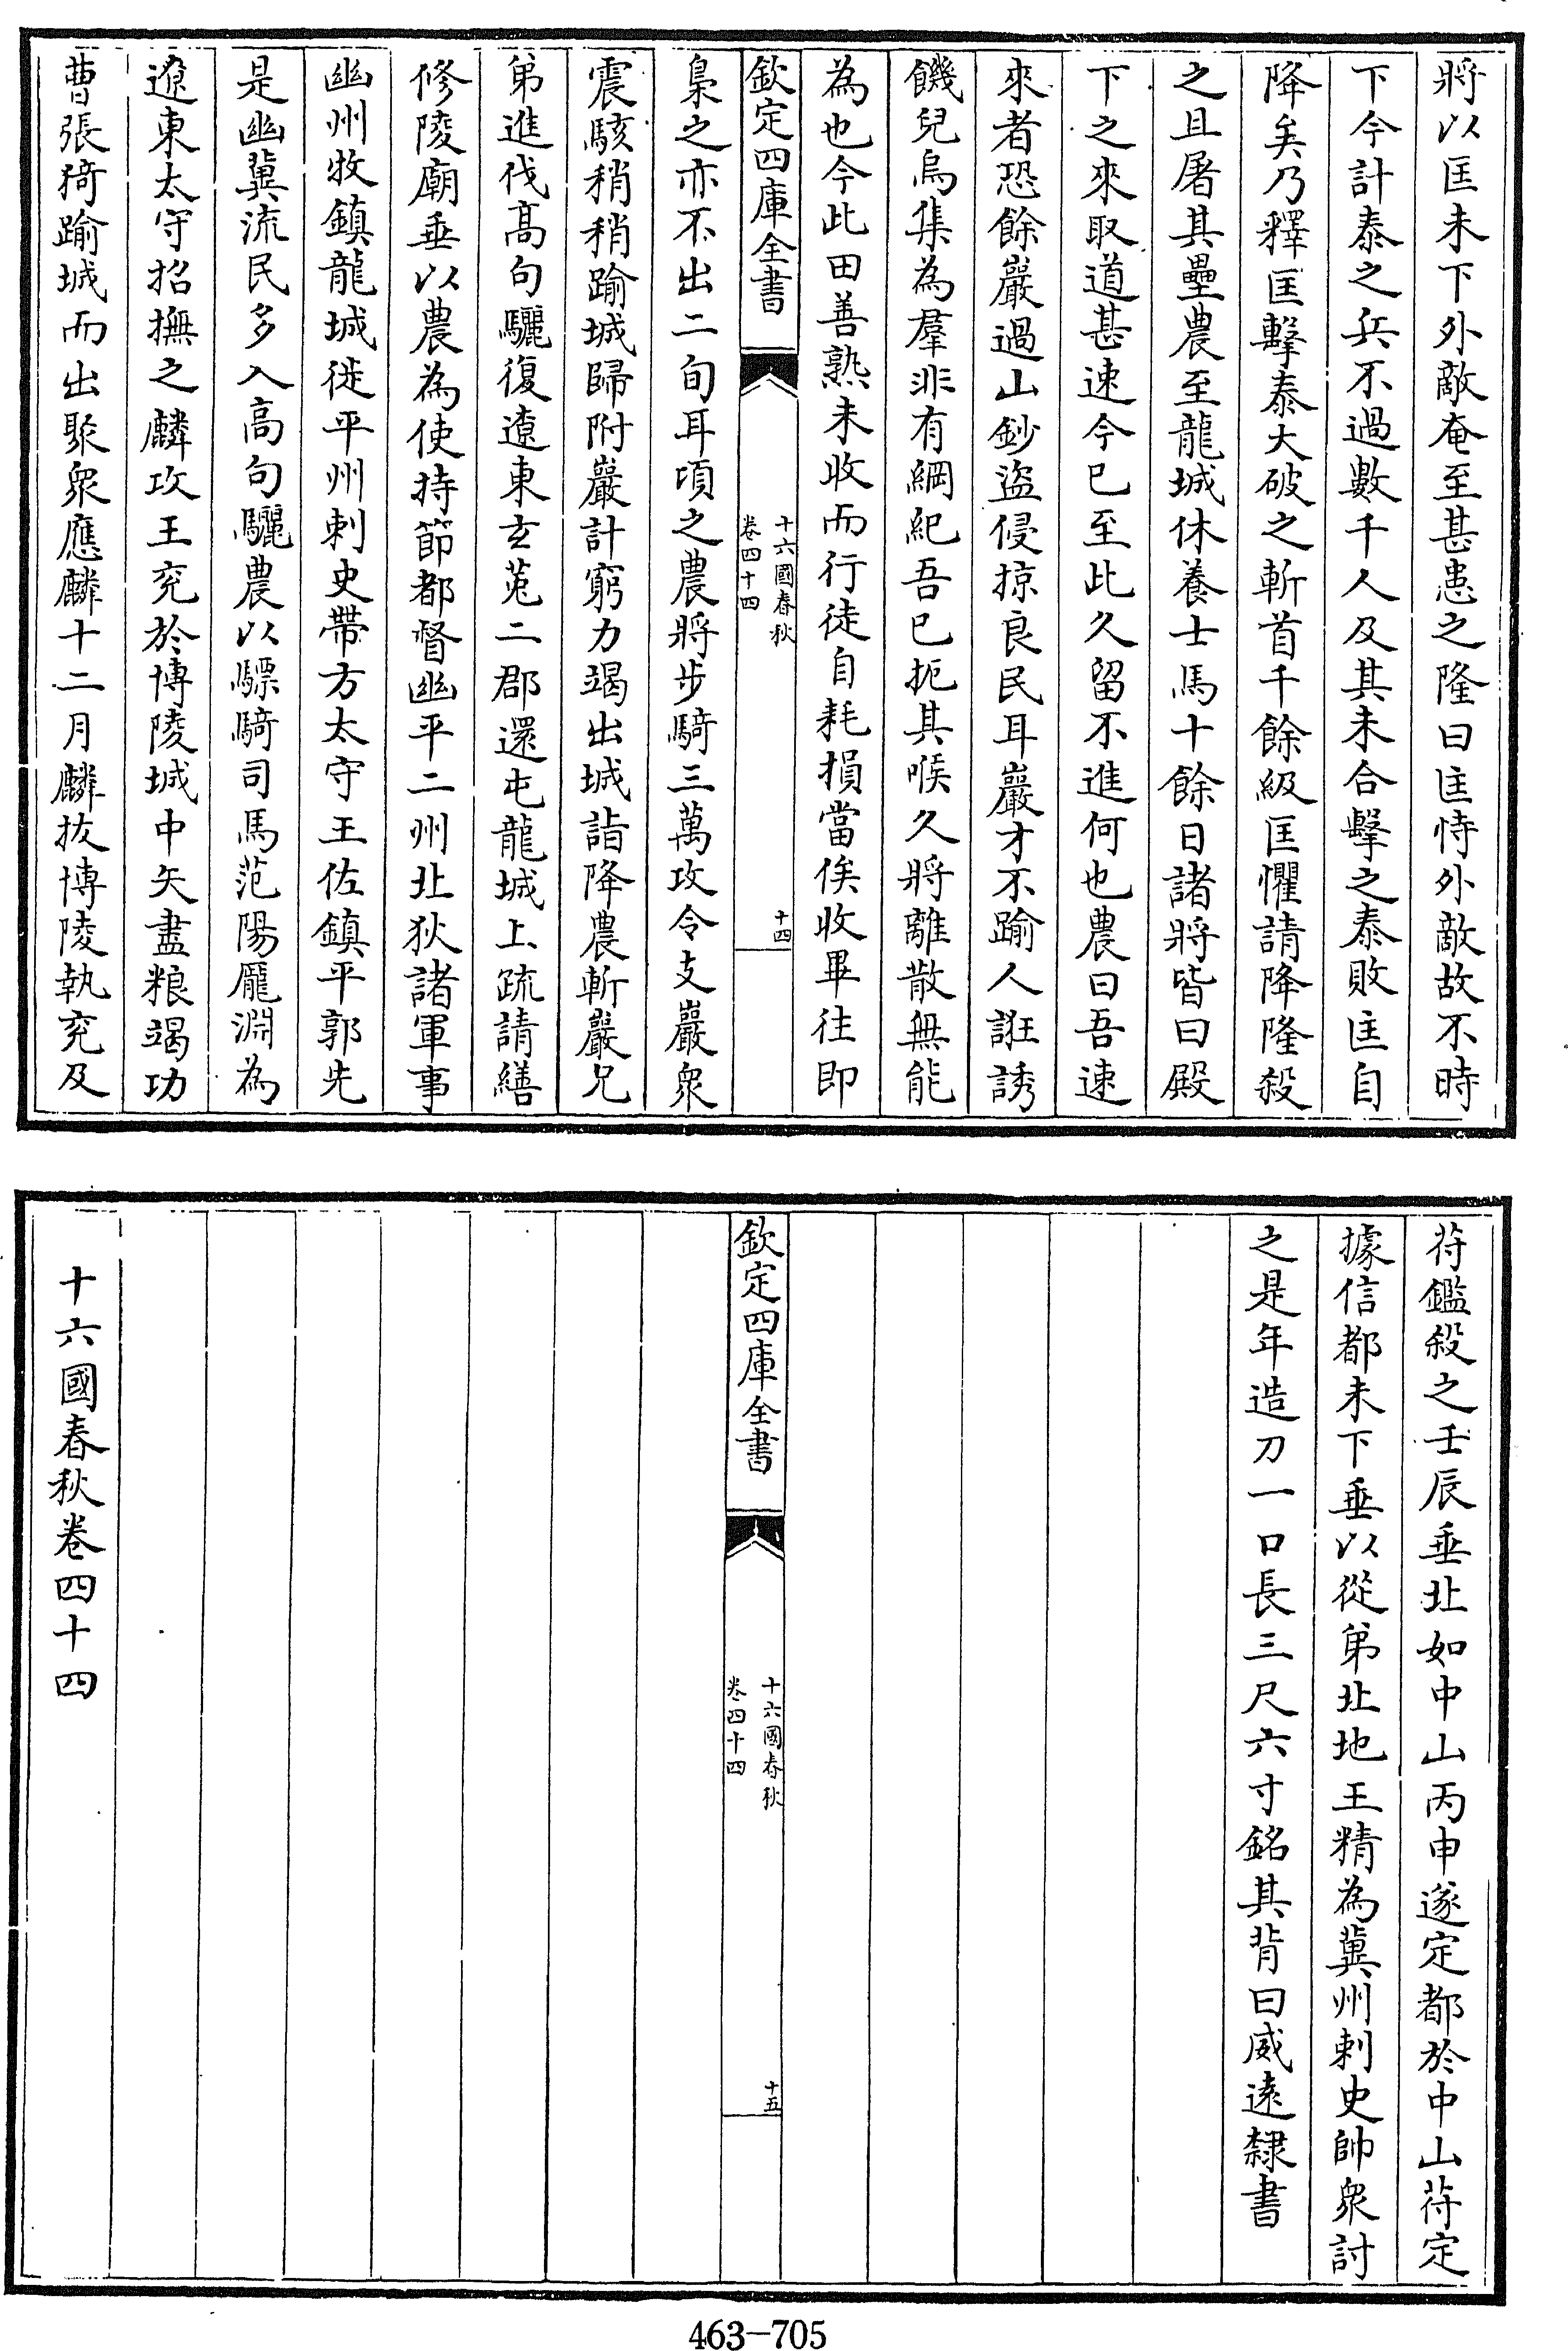 將以匡未下外敵奄至甚患之隆曰匡恃外敵故不時
下今計泰之兵不過數千人及其未合擊之泰敗匡自
降矣乃釋匡擊泰大破之斬首千餘級匡懼請降隆殺
之且屠其壘農至龍城休養士馬十餘日諸將皆曰殿
下之來取道甚速今已至此久留不進何也農曰吾速
來者恐餘巖過山鈔盜侵掠良民耳巖才不踰人誑誘
饑兒烏集為羣非有綱紀吾已扼其喉久將離散無能
為也今此田善熟未收而行徒自耗損當俟收畢往即
欽定四庫全書
十六國春秋
卷四十四
十四
梟之亦不出二旬耳項之農將步騎三萬攻令支巖衆
震駭稍稍踰城歸附巖計窮力竭出城詣降農斬巖兄
弟進伐高句驪復遼東玄菟二郡還屯龍城上疏請繕
修陵廟垂以農為使持節都督幽平二州北狄諸軍事
幽州牧鎮龍城徙平州刺史帶方太守王佐鎮平郭先
是幽冀流民多入高句驪農以驃騎司馬范陽龐淵為
遼東太守招撫之麟攻王兖於博陵城中矢盡粮竭功
曹張猗踰城而出聚衆應麟十二月麟拔博陵執兖及
苻鑑殺之壬辰垂北如中山丙申遂定都於中山苻定
據信都未下垂以從弟北地王精為冀州刺史帥衆討
之是年造刀一口長三尺六寸銘其背曰威遠隸書
欽定四庫全書
十六國春秋
卷四十四
十五
十六國春秋卷四十四
463-705